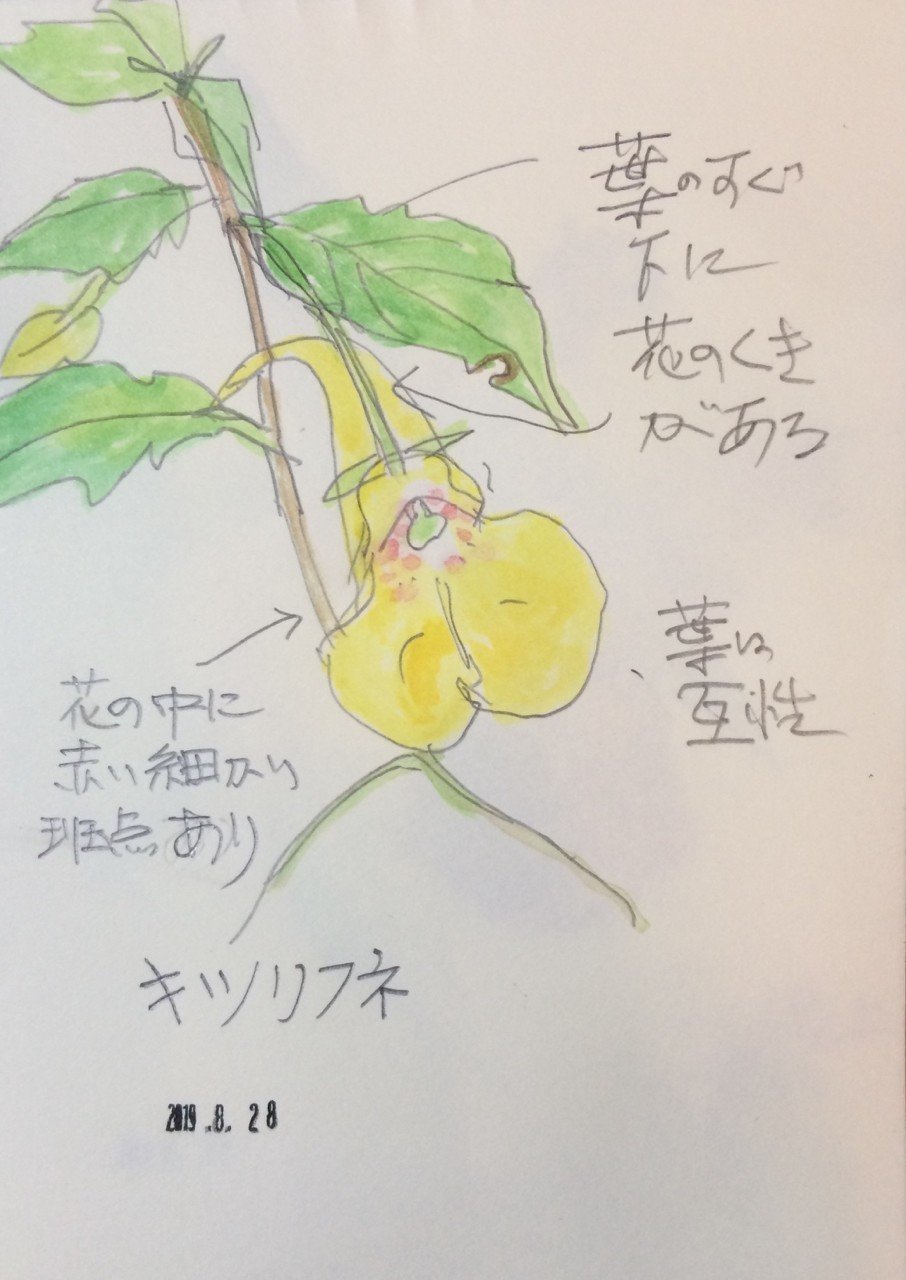 葉のすぐ
下に
花のくき
がある
葉は
互性
花の中に
赤い細かい
斑点あり
キツリフネ
2019.8.28